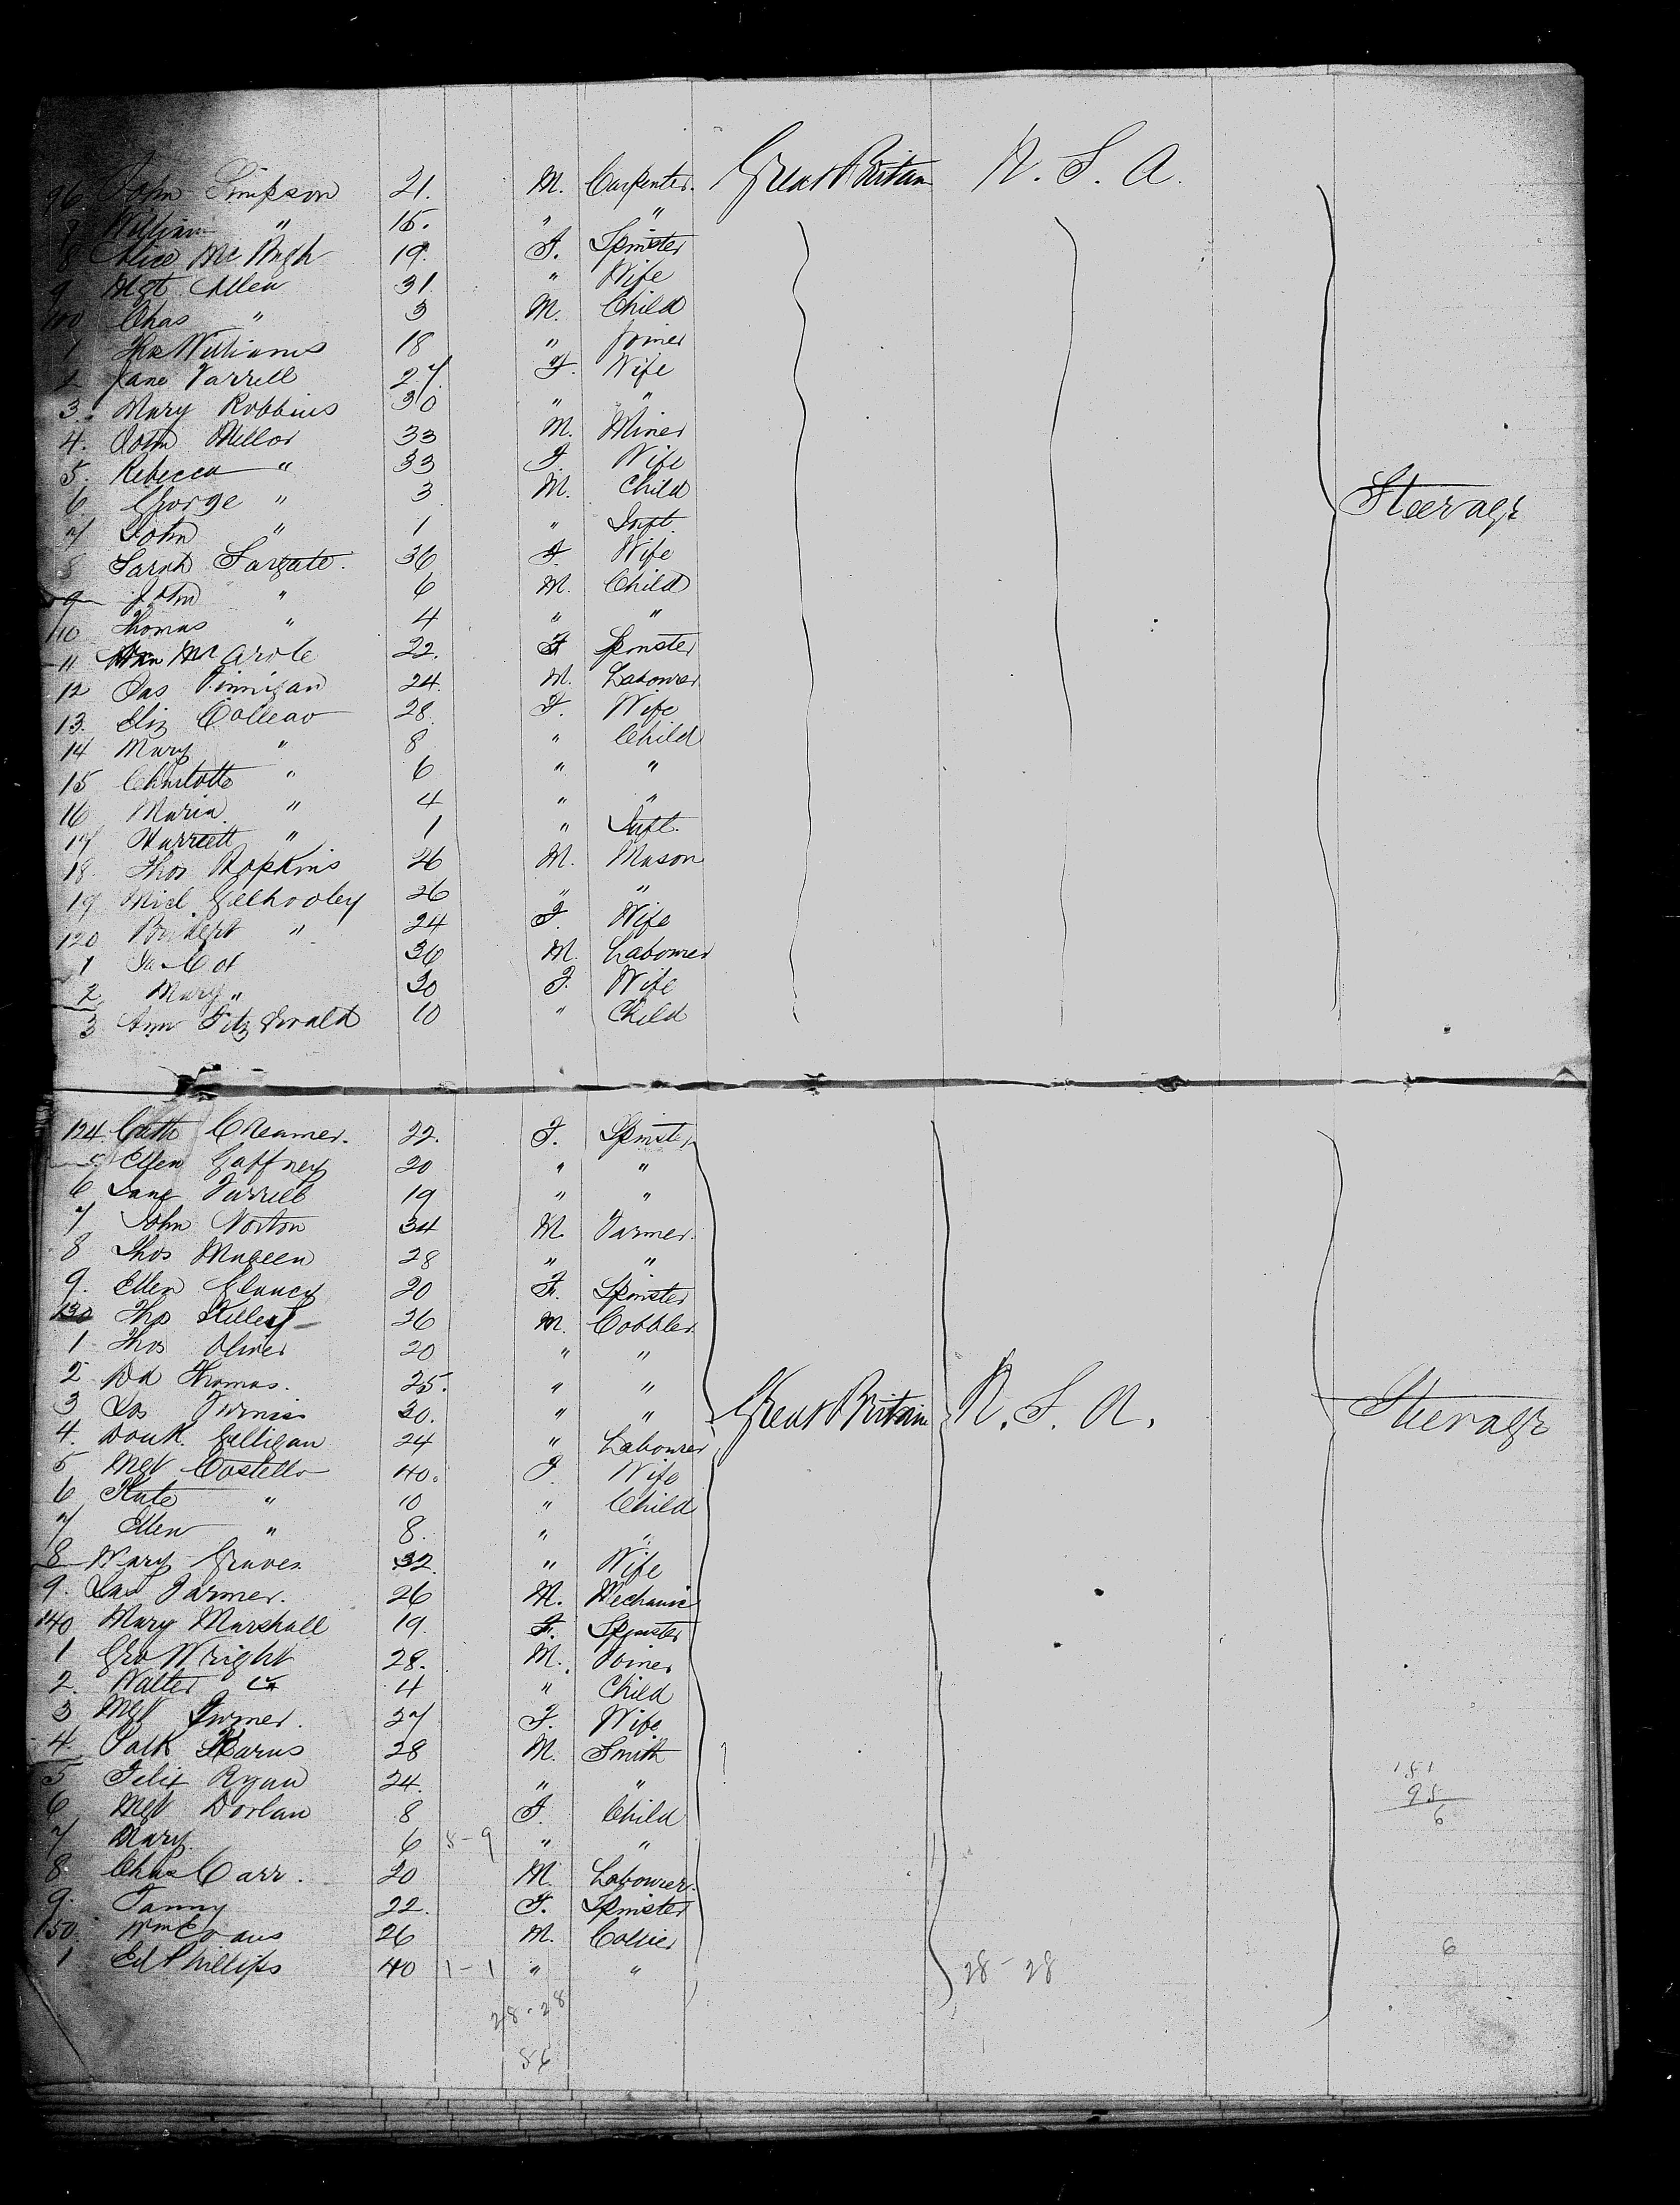 96. John Simpson 21. M. Carpenter. Great Britain U. S. A.
7 William " 15. " "
8 Alice McHugh 19. F. Spinster
9 Mgt Allen 31. " Wife
100 Chas " 3 M. Child
1 Williams 18 " Joiner
2 Jane Farrell 27. F. Wife
3. Mary Robbins 30 " "
4. John Mellor 33 M. Miner
5. Rebecca " 33 F. Wife
6. George " 3 M. Child
7 John " 1 " Inft.
8 Sarah Sargate. 36 F. Wife
9 John " 6 M. Child
110 Thomas " 4 " "
11 Ann 22. F Spinster
12 Jas Finnigan 24. M. Labourer
13. Eliz 28. F. Wife
14 Mary " 8 " Child
15 Charlotte " 6 " "
16 Maria. " 4 " "
17 Harriett " 1 " Inft.
18 Thos Hopkins 26 M. Mason
19 Micl Gilhooley 26 " "
120 Bridget " 24 F. Wife
1 36 M. Labourer
2 Mary " 30 F. Wife
3 Ann Fitzgerald 10 " Child
Steerage
124. Cath Creamer. 22. F. Spinster
5 Ellen Gaffney 20 " "
6 Jane Farrell 19 " "
7 John Norton 34 M. Farmer.
8 Thos 28 " "
9. Ellen Clancy 20 F. Spinster
130 Thos Killey 36 M. Cobbler.
1 Thos Oliver 20 " "
2 Dd Thomas. 25. " "
3 Jos 30. " " Great Britain U. S. A. Steerage
4. Gilligan 24 " Labourer
5 Mgt Costello 40. F. Wife
6 Kate " 10 " Child
7 Ellen " 8. " "
8 Mary Graves. 32. " Wife
9. Jas Farmer. 26 M. Mechanic
140 Mary Marshall 19. F. Spinster
1 Geo Wright 28. M. Joiner
2. Walter " 4 " Child
3 Mgt Turner. 27 F. Wife
4. Patk 28 M. Smith
5 Felix Ryan 24. " "
6 Mgt Dorlan 8 F. Child
7 Mary 6 8-9 " "
8 Chas Carr. 20 M. Labourer.
9. Fanny 22. F. Spinster
150. Wm Evans 26 M. Collier
1 Ed Phillips 40 1-1 " "
151
95
6
6
28-28
28-28
56